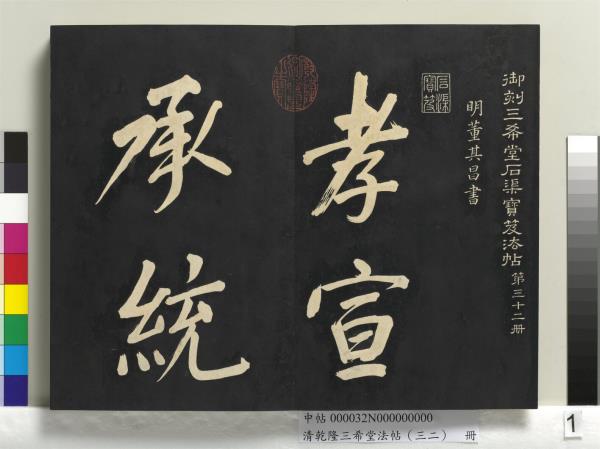 御刻三希堂石渠寶笈法帖 第三十二册
明董其昌書
石渠
寶笈
孝宣
承統
中帖 000032N000000000
清乾隆三希堂法帖（三二） 冊
1